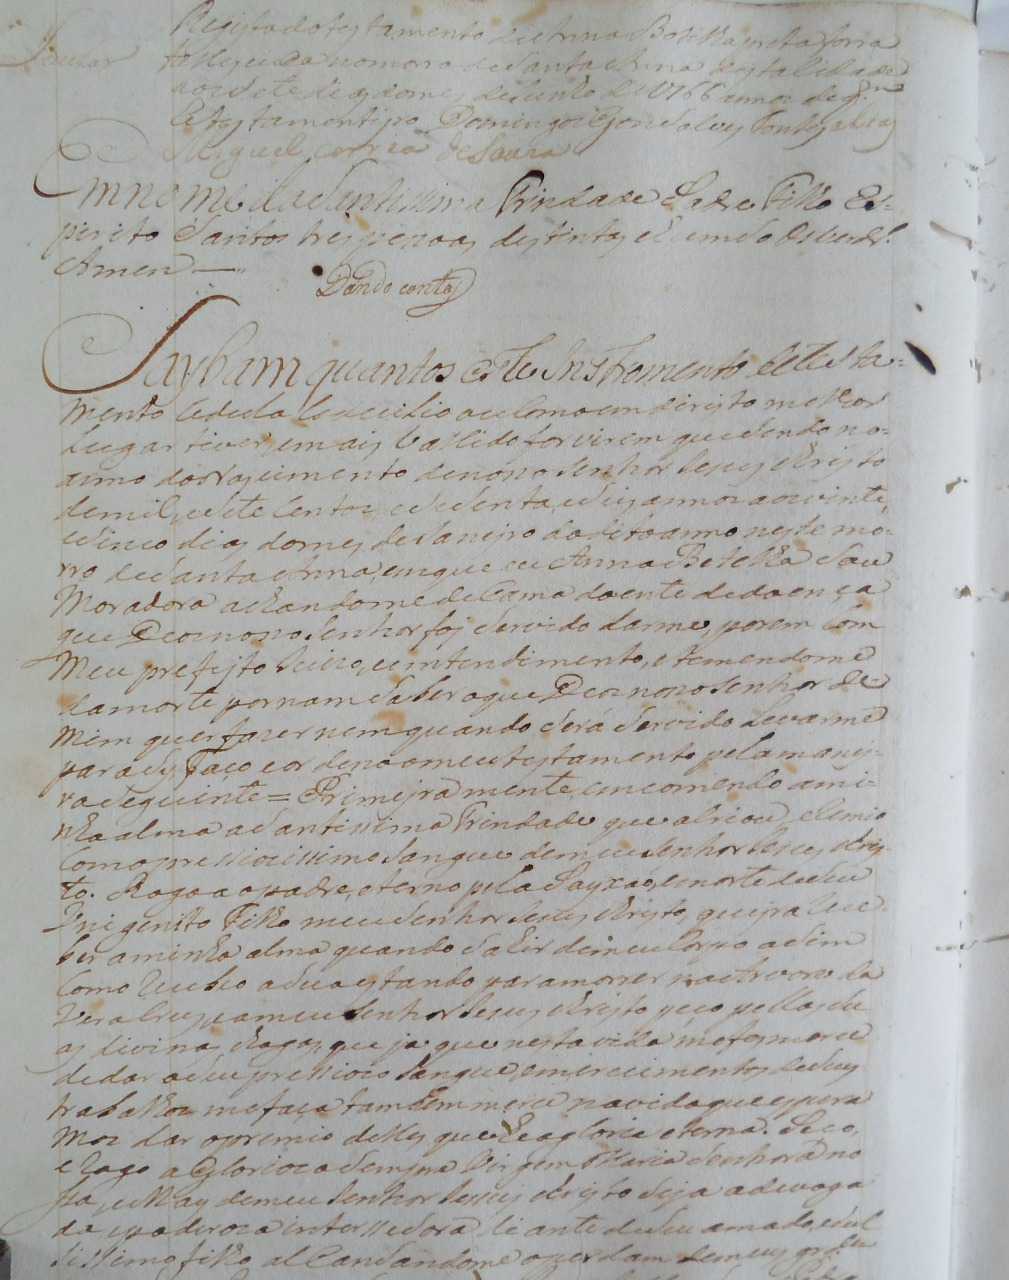 Registo do testamento de Anna Botelha preta forra
falescida no morro de Santa Anna desta lidade
aos sete dias do mes de junho de 1766 annos de q.
he testamentr.o Domingos Gonsalves Fontes alias
Miguel Correa de Souza
Em nome da Santissima Trindade Padre Filho Es-
pirito Santo tres pesoas destintas e hum so Deus verdr.o
Amen
Dando contas
Saybam quantos este Instromento de testa-
mento sedula codecilio ou como em direjto melhor
lugar tiver e mais vallido for virem que sendo no
anno do Nascimento de noso Senhor Jesus Christo
de mil e sete centos e sesenta e seis annos aos vinte
e sinco dias do mes de Janejro do dito anno neste mo-
rro de Santa Anna, em que eu Anna Botelha sou
Moradora achandome de cama doente de doença
que Deos noso Senhor foj servido darme, porem com
Meu prefejto juizo, e intendimento, e temendome
da morte por nam saber o que Deos noso Senhor de
mim quer fazer nem quando será servido levarme
para sy Faço e ordeno o meu testamento pela manej-
ra seguinte = Primejramente, emcomendo a mi-
nha alma a Santissima Trindade que a criou, e remio
com o pressiocissimo Sangue de meu Senhor Jesus Chris
to. Rogo ao padre, eterno pela Payxaõ, e morte de seu
Unigenito Filho meu Senhor Jesus Christo, quejra rece
ber a minha alma quando sahir de meu Corpo asim
Como recebeo a sua estando para morrer na Arvore da
Vera Crus, e a meu Senhor Jesus Christo peço pellas su
as divinas chagas, que ja que nesta vida me fes merce
de dar o seu pressiozo Sangue, e merecimentos de seus
trabalhos me faça tambem merce na vida que espera
Mos dar o premio delles que he a gloria eterna. Peço,
e Rogo a Glorioza Sempre Virgem Maria Senhora no
sa, e May de meu Senhor Jesus Christo seja advoga
da e poderoza intersedora diante de seu amado, e dul
sissimo filho alcansandome o perdam de meus